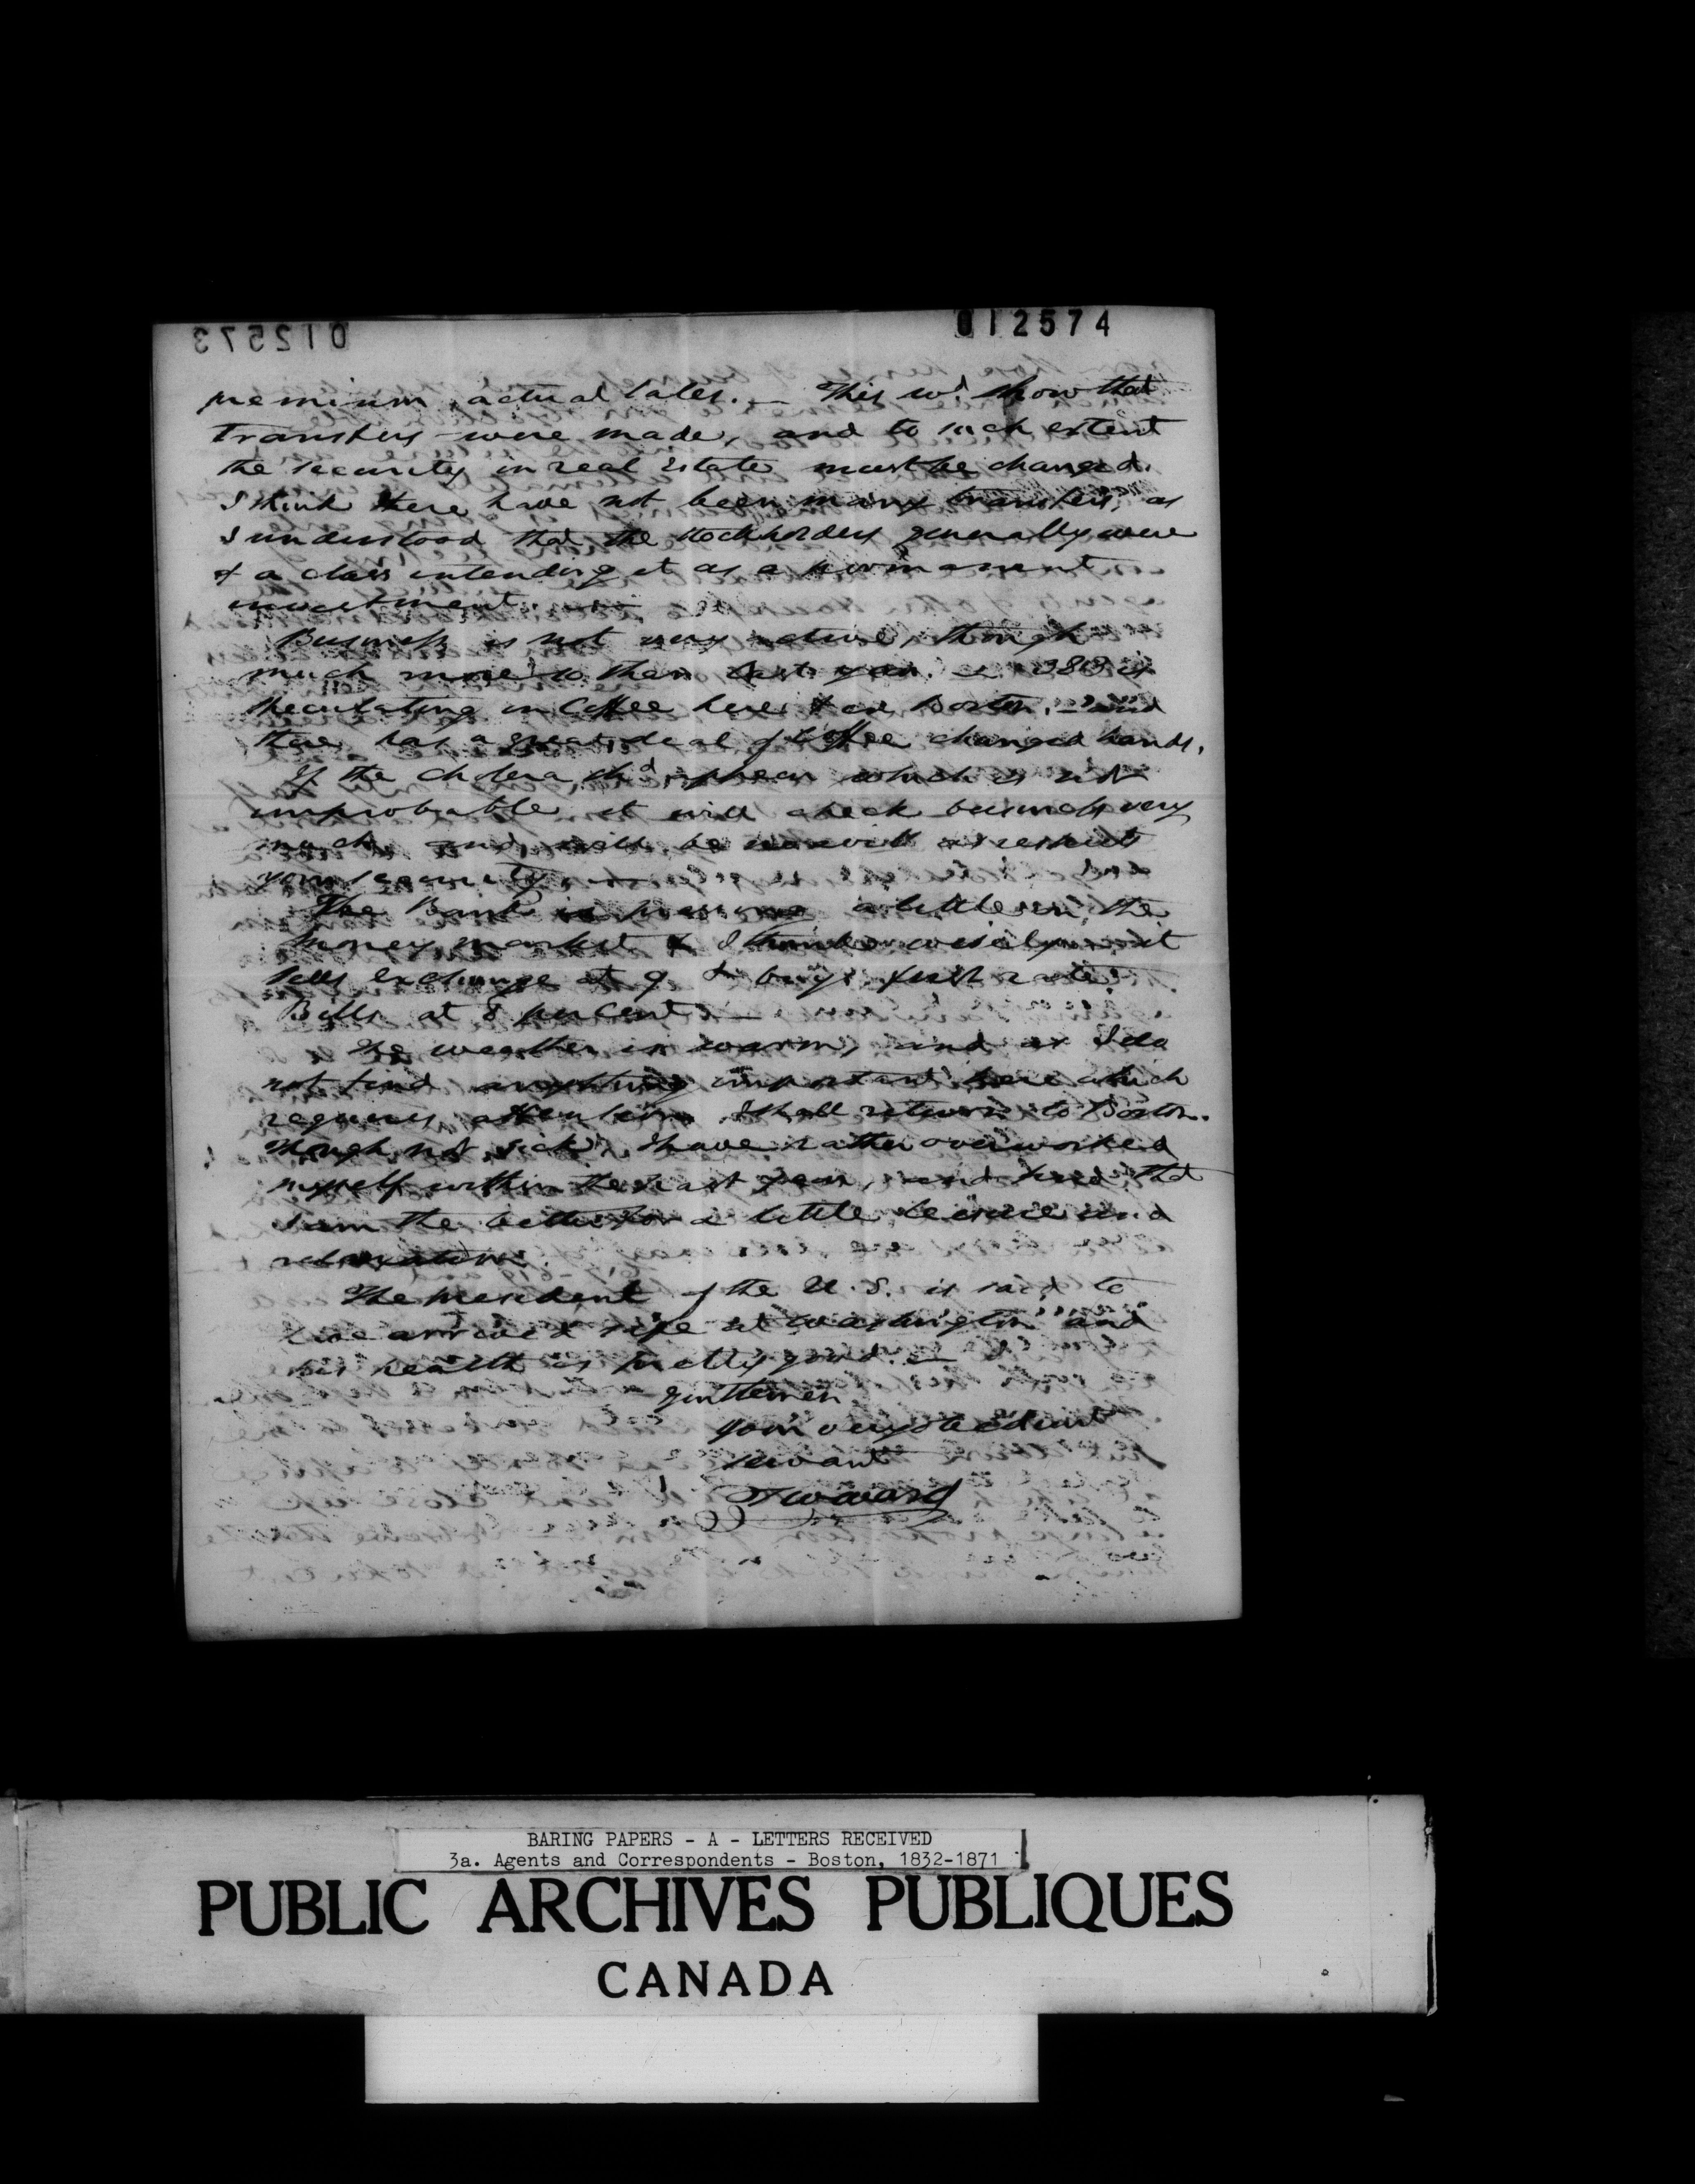 012573
012574
premium, actual sales. — This wd. show that
transfers were made, and to such extent
the security in real estate must be changed.
I think there have not been many transfers, as
I understood that the stockholders generally were
of a class intending it as a permanent
investment. —
Business is not very active, though
much more so than last year.
speculating in Coffee here & in Boston, — and
there has a great deal of Coffee changed hands.
If the Cholera shd. appear which is not
improbable it will check business very
much and will be as respects
your security. —
The Bank is pressing a little in the
money market & I think wisely — it
sells exchange at 9 & buys first rate
Bills at 8 per Cent —
The weather is warm, and as I do
not find anything important here which
requires attention I shall return to Boston.
Though not sick, I have rather overworked
myself within the last year, and find that
I am the better for a little leisure and
relaxation.
The President of the U. S. is said to
have arrived safe at Washington and
his health is pretty good. —
Gentlemen
Your very obedient
servant
T W Ward
BARING PAPERS - A - LETTERS RECEIVED
3a. Agents and Correspondents - Boston, 1832-1871
PUBLIC ARCHIVES PUBLIQUES
CANADA